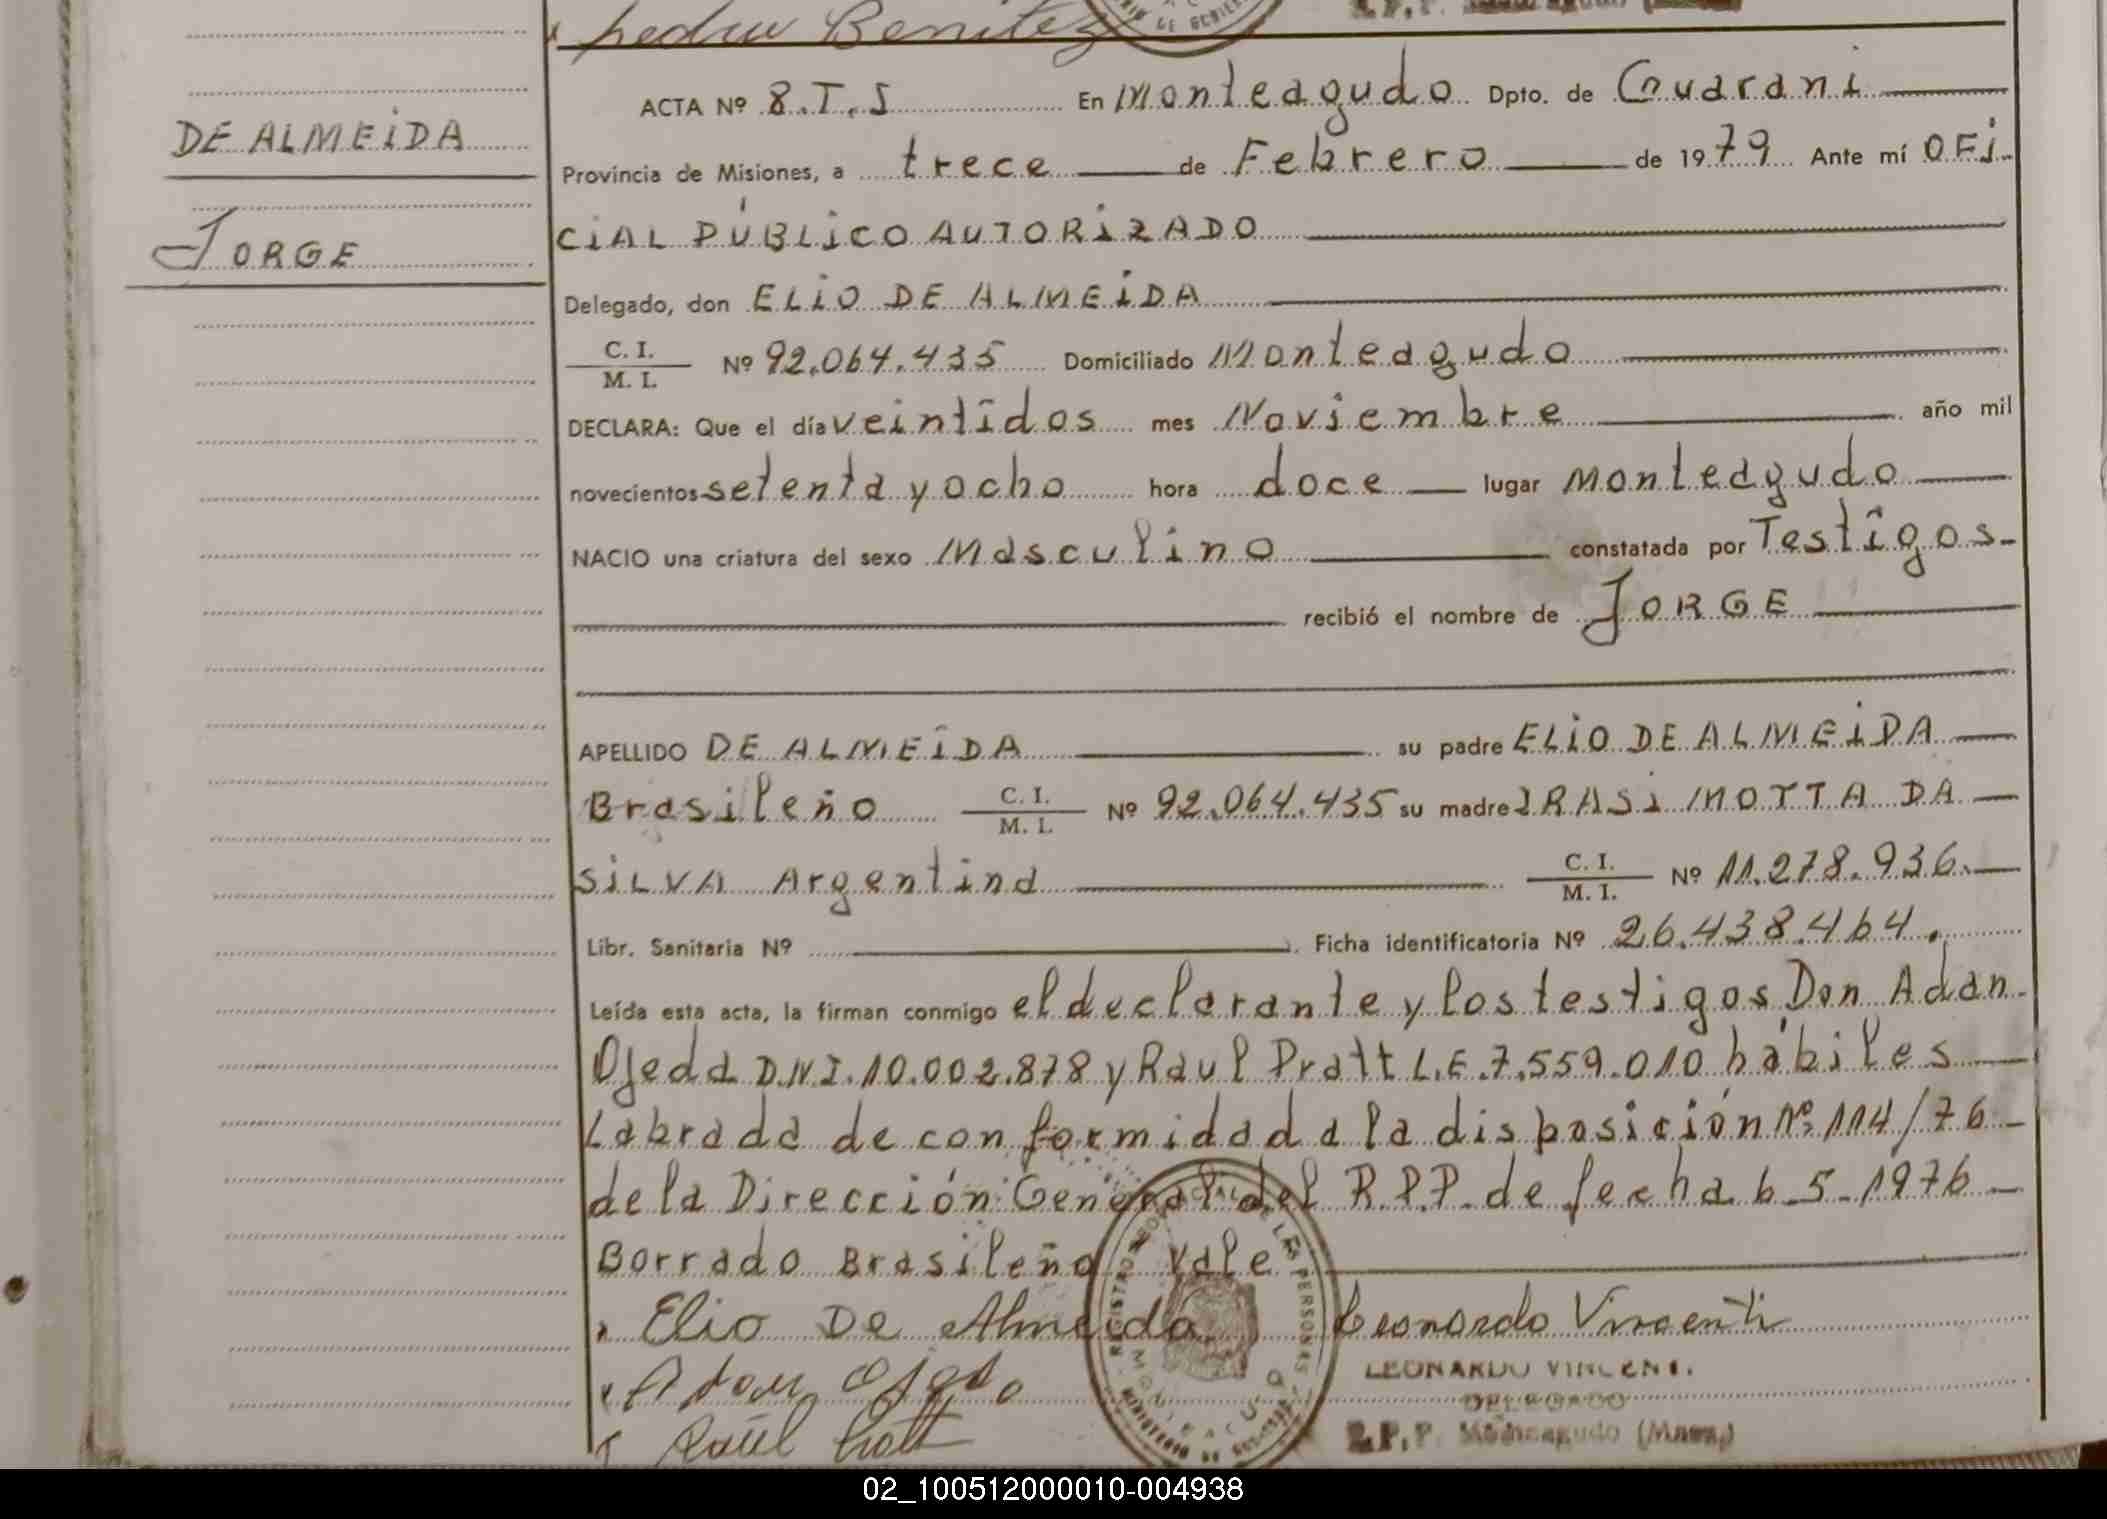 pedro Benitez
DE ALMEIDA
JORGE
ACTA Nº 8.T.S En Monteagudo Dpto. de Guarani
Provincia de Misiones, a trece de Febrero de 1979 Ante mí OFi-
CiAL PÚBLiCO AUTORiZADO
Delegado, don ELiO DE ALMEiDA
C. I.
M. I. Nº 92.064.435 Domiciliado Monteagudo
DECLARA: Que el día veintidos mes Noviembre año mil
novecientos setenta y ocho hora doce lugar Monteagudo
NACIO una criatura del sexo Masculino constatada por Testigos-
recibió el nombre de JORGE
APELLIDO DE ALMEiDA su padre ELiO DE ALMEiDA
Brasileño C. I.
M. I. Nº 92.064.435 su madre IRASi MOTTA DA
SiLVA Argentina C. I.
M. I. Nº 11.278.936.
Libr. Sanitaria Nº Ficha identificatoria Nº 26.438.464.
Leída esta acta, la firman conmigo el declarante y los testigos Don Adan
Ojeda D.N.I. 10.002.878 y Raul Pratt L.E. 7.559.010 hábiles
Labrada de conformidad a la disposición Nº 114/76-
de la Dirección General del R.P.P. de fecha 6-5-1976-
Borrado Brasileño Vale
Elio De Almeida Leonardo Vincenti
LEONARDO VINCENTI
DELEGADO
R.P.P. Monteagudo (Mnes.)
Adan Ojeda
Raúl Pratt
REGISTRO PROVINCIAL DE LAS PERSONAS
MONTEAGUDO
MINISTERIO DE GOBIERNO
02_100512000010-004938